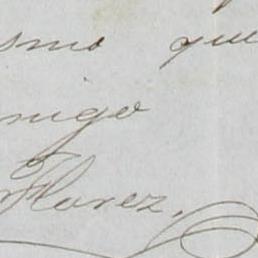 smo que
migo
Florez,